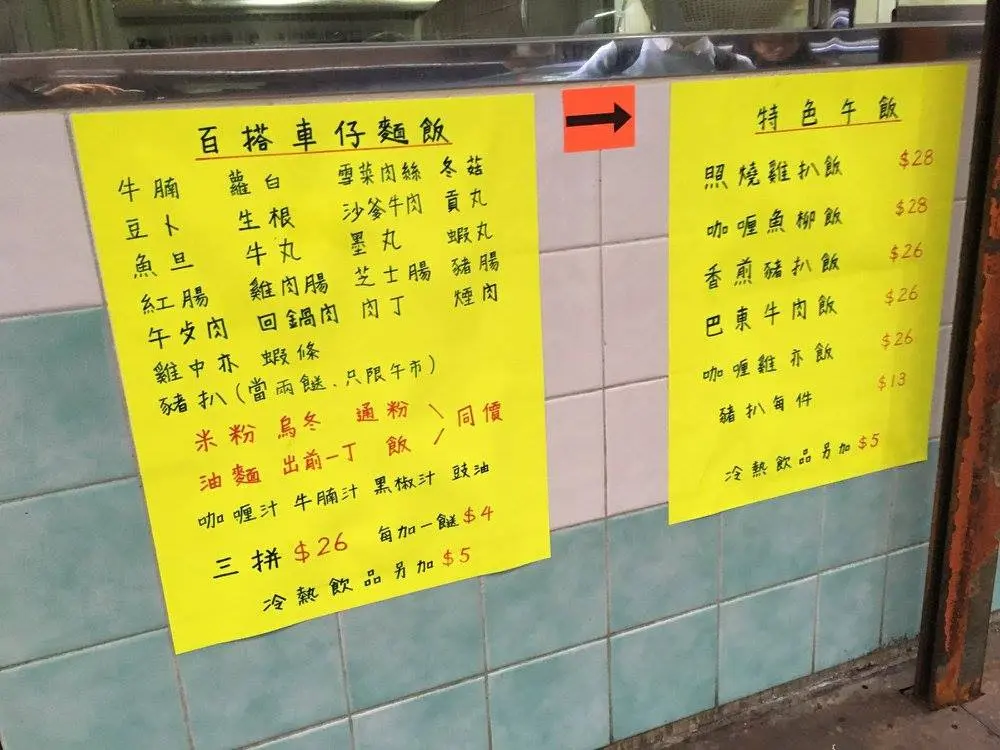 百搭車仔麵飯
牛腩 蘿白 雪菜肉絲 冬菇
豆卜 生根 沙爹牛肉 貢丸
魚旦 牛丸 墨丸 蝦丸
紅腸 雞肉腸 芝士腸 豬腸
午歺肉 回鍋肉 肉丁 煙肉
雞中亦 蝦條
豬扒(當兩餸、只限午市)
米粉 烏冬 通粉 \ 同價
油麵 出前一丁 飯 /
咖喱汁 牛腩汁 黑椒汁 豉油
三拼 $26 每加一餸 $4
冷熱飲品另加 $5
→
特色午飯
照燒雞扒飯 $28
咖喱魚柳飯 $28
香煎豬扒飯 $26
巴東牛肉飯 $26
咖喱雞亦飯 $26
豬扒每件 $13
冷熱飲品另加 $5